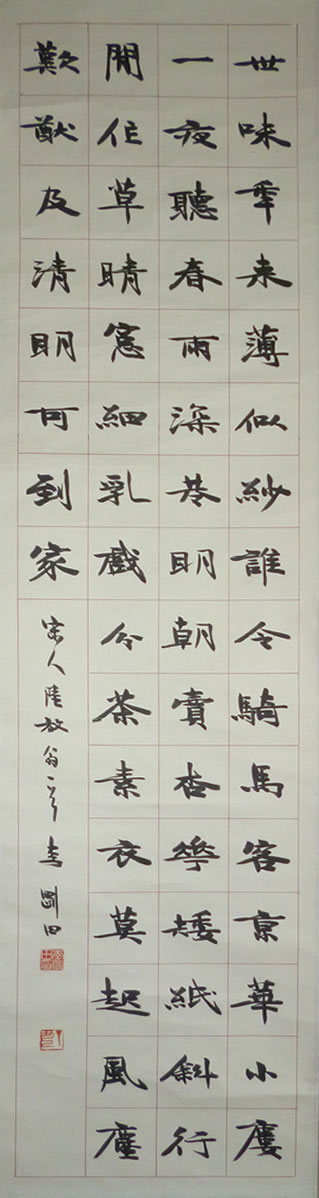 世味年来薄似紗誰令騎馬客京華小廔
一夜聽春雨深巷明朝賣杏花矮紙斜行
閒作草晴窻細乳戲分茶素衣莫起風塵
歎猷及清明可到家
宋人陸放翁一首 李剛田